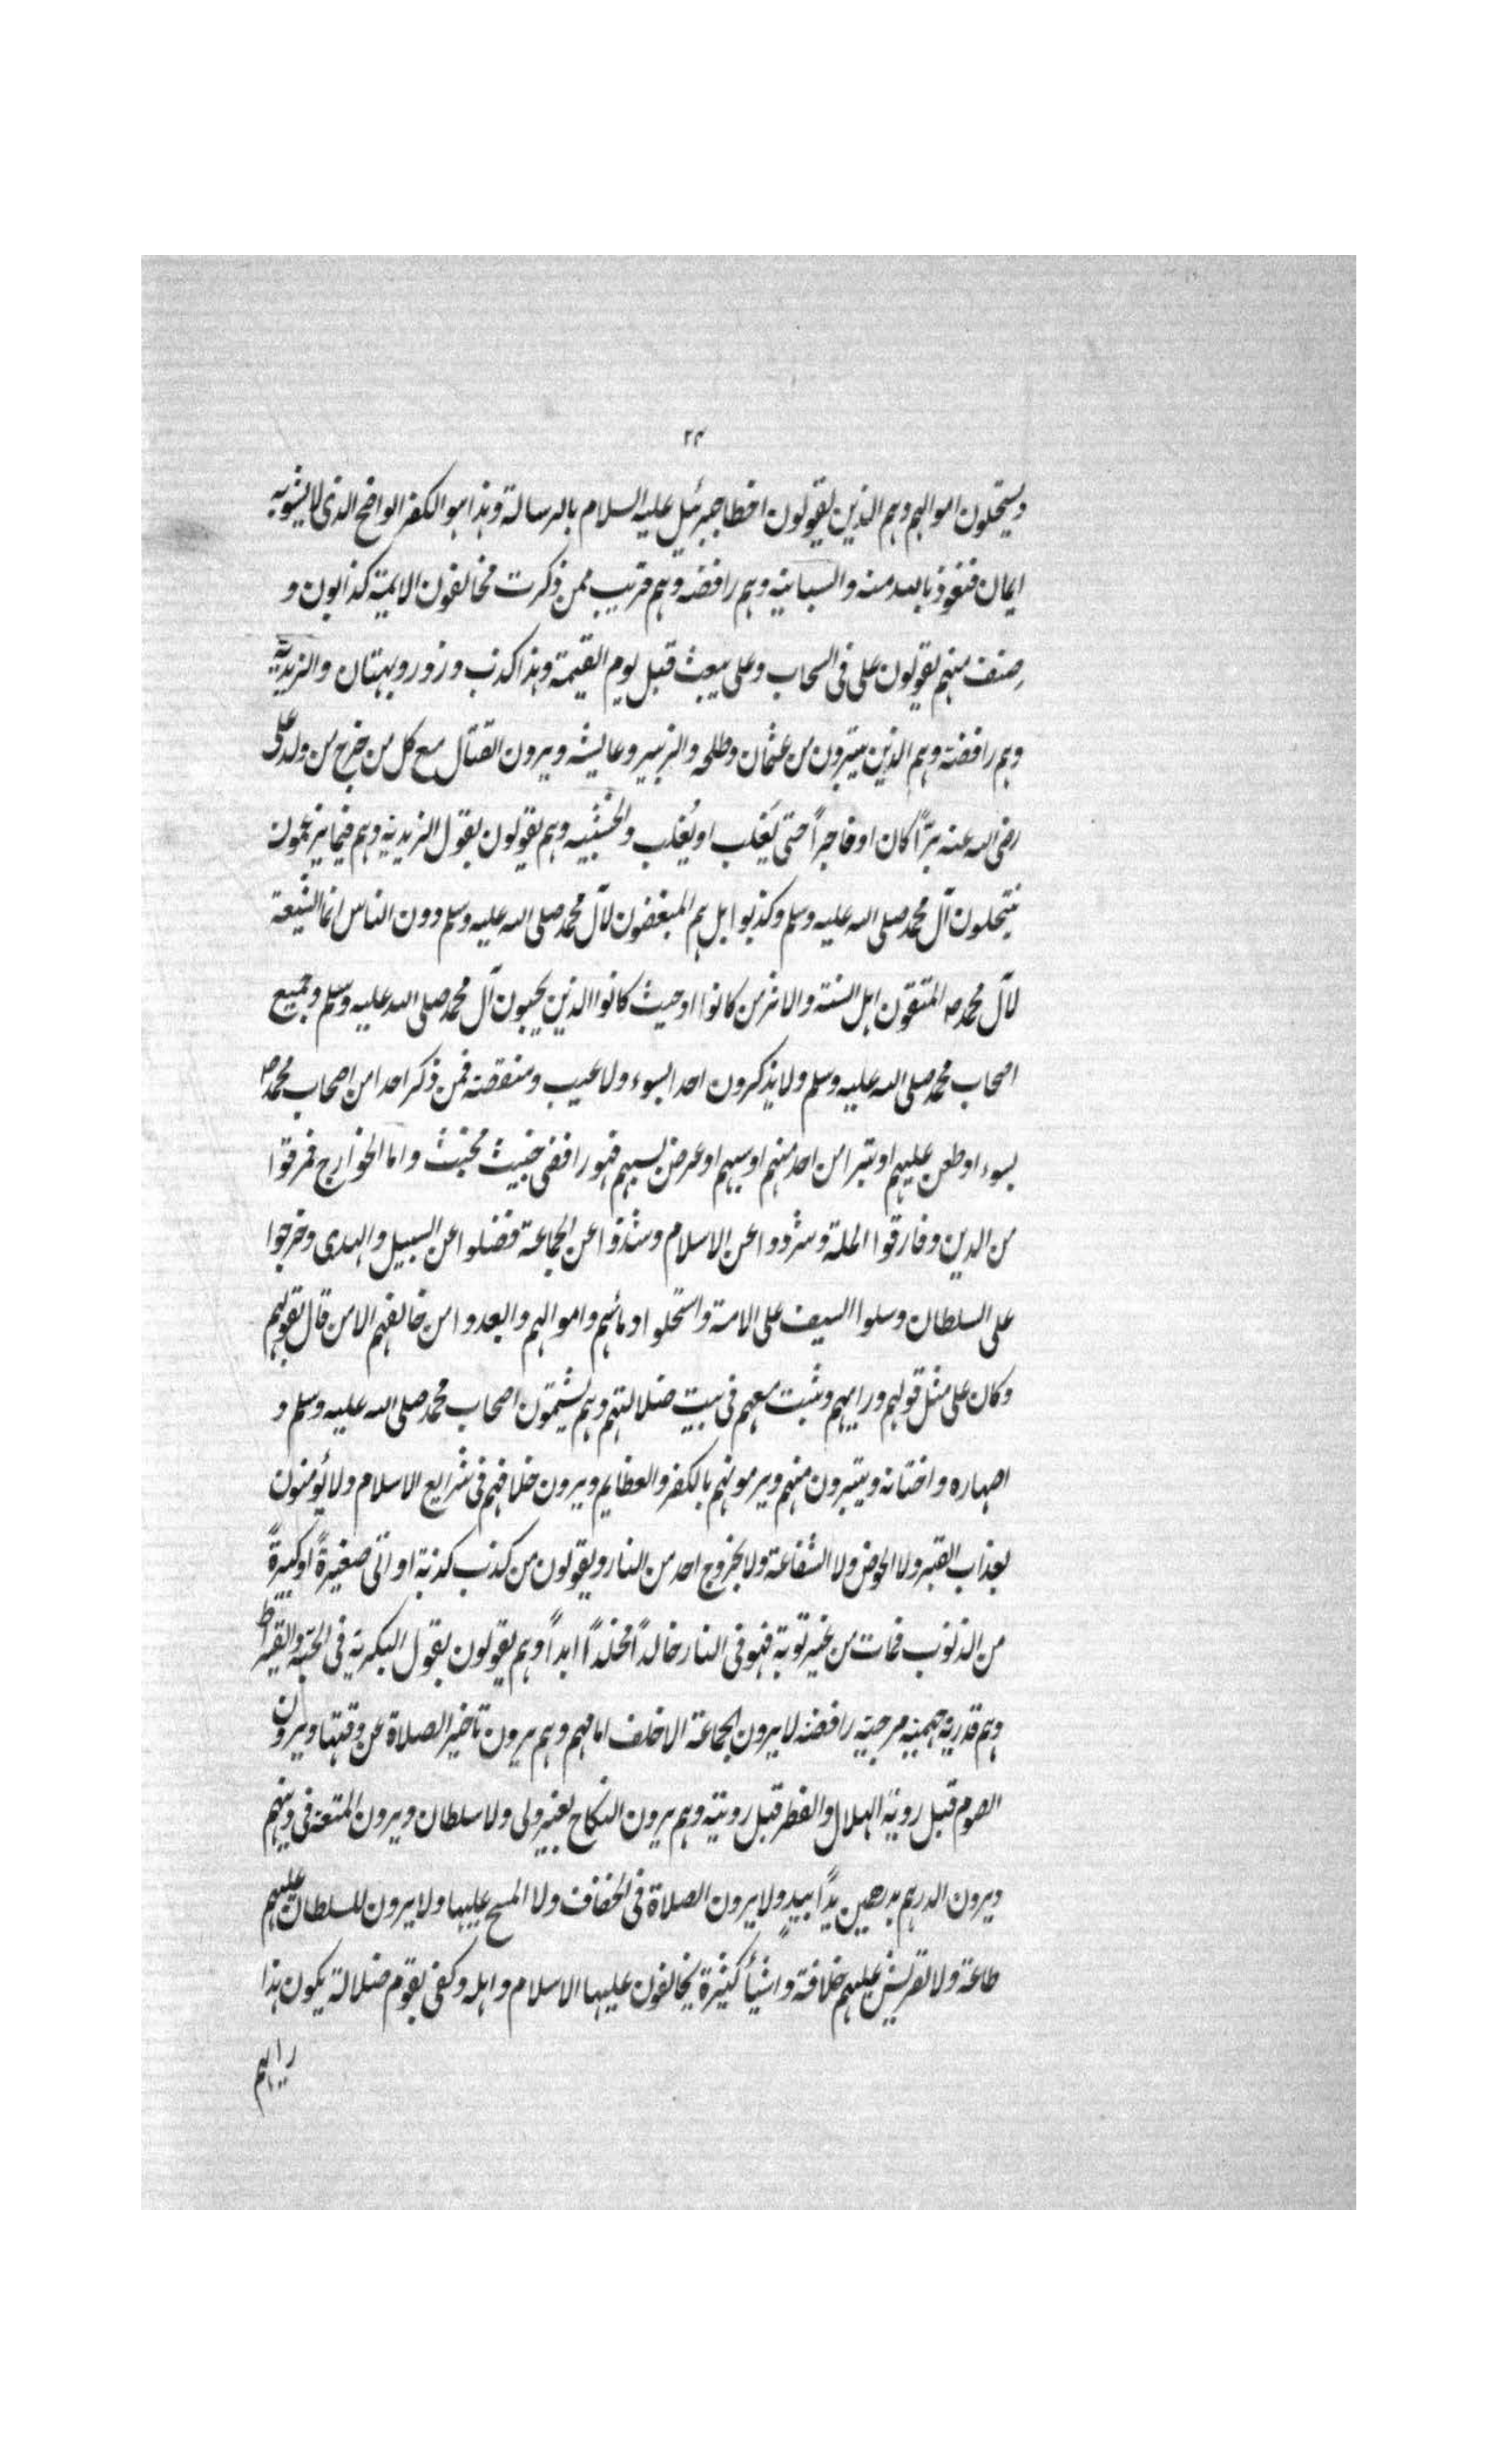 ٢٣
ويستحلون اموالهم وهم الذين يقولون اخطا جبرئيل عليه السلام بالرسالة وهذا هو الكفر الواضح الذى لا يشوبه
ايمان فنعوذ بالله منه والسبائية وهم رافضة وهم قريب ممن ذكرت مخالفون الائمة كذابون و
صنف منهم يقولون على فى السحاب وعلى يبعث قبل يوم القيمة وهذا كذب وزور وبهتان والزيدية
وهم رافضة وهم الذين يتبرون من عثمان وطلحه والزبير وعايشه ويرون القتال مع كل من خرج من ولد على
رضى الله عنه برّاً كان او فاجراً حتى يَغلب او يُغلب والخشبيه وهم يقولون بقول الزيديه وهم فيما يزعمون
ينتحلون آل محمد صلى الله عليه وسلم وكذبوا بل هم المبغضون لآل محمد صلى الله عليه وسلم دون الناس انما الشيعة
لآل محمد صه المتقون اهل السنة والاثر من كانوا او حيث كانوا الذين يحبون آل محمد صلى الله عليه وسلم وجميع
اصحاب محمد صلى الله عليه وسلم ولا يذكرون احدا بسوء ولا عيب ومنقصة فمن ذكر احدا من اصحاب محمد صه
بسوء او طعن عليهم او تبرا من احد منهم او سبهم او عرض بسبهم فهو رافضى خبيث مخبث واما الخوارج فمرقوا
من الدين وفارقوا الملة وشردوا عن الاسلام وشذوا عن الجماعة فضلوا عن السبيل والهدى وخرجوا
على السلطان وسلوا السيف على الامة واستحلوا دمائهم واموالهم وابعدوا من خالفهم الا من قال بقولهم
وكان على مثل قولهم ورايهم وثبت معهم فى بيت ضلالتهم وهم يشتمون اصحاب محمد صلى الله عليه وسلم و
اصهاره واختانه ويتبرون منهم ويرمونهم بالكفر والعظايم ويرون خلافهم فى شرايع الاسلام ولا يؤمنون
بعذاب القبر ولا الحوض ولا الشفاعة ولا بخروج احد من النار ويقولون من كذب كذبة او اتى صغيرةً او كبيرةً
من الذنوب فمات من غير توبة فهو فى النار خالداً مخلداً ابداً وهم يقولون بقول البكرية فى الحبّة والقيراط
وهم قدرية جهمية مرجية رافضة لا يرون الجماعة الا خلف امامهم وهم يرون تاخير الصلاة عن وقتها ويرون
الصوم قبل روية الهلال والفطر قبل رويته وهم يرون النكاح بغير ولى ولا سلطان ويرون المتعة فى دينهم
ويرون الدرهم بدرهمين يداً بيدٍ ولا يرون الصلاة فى الخفاف ولا المسح عليها ولا يرون للسلطان عليهم
طاعة ولا لقريش عليهم خلافة واشيأً كثيرة يخالفون عليها الاسلام واهله وكفى بقوم ضلالة يكون هذا
رايهم